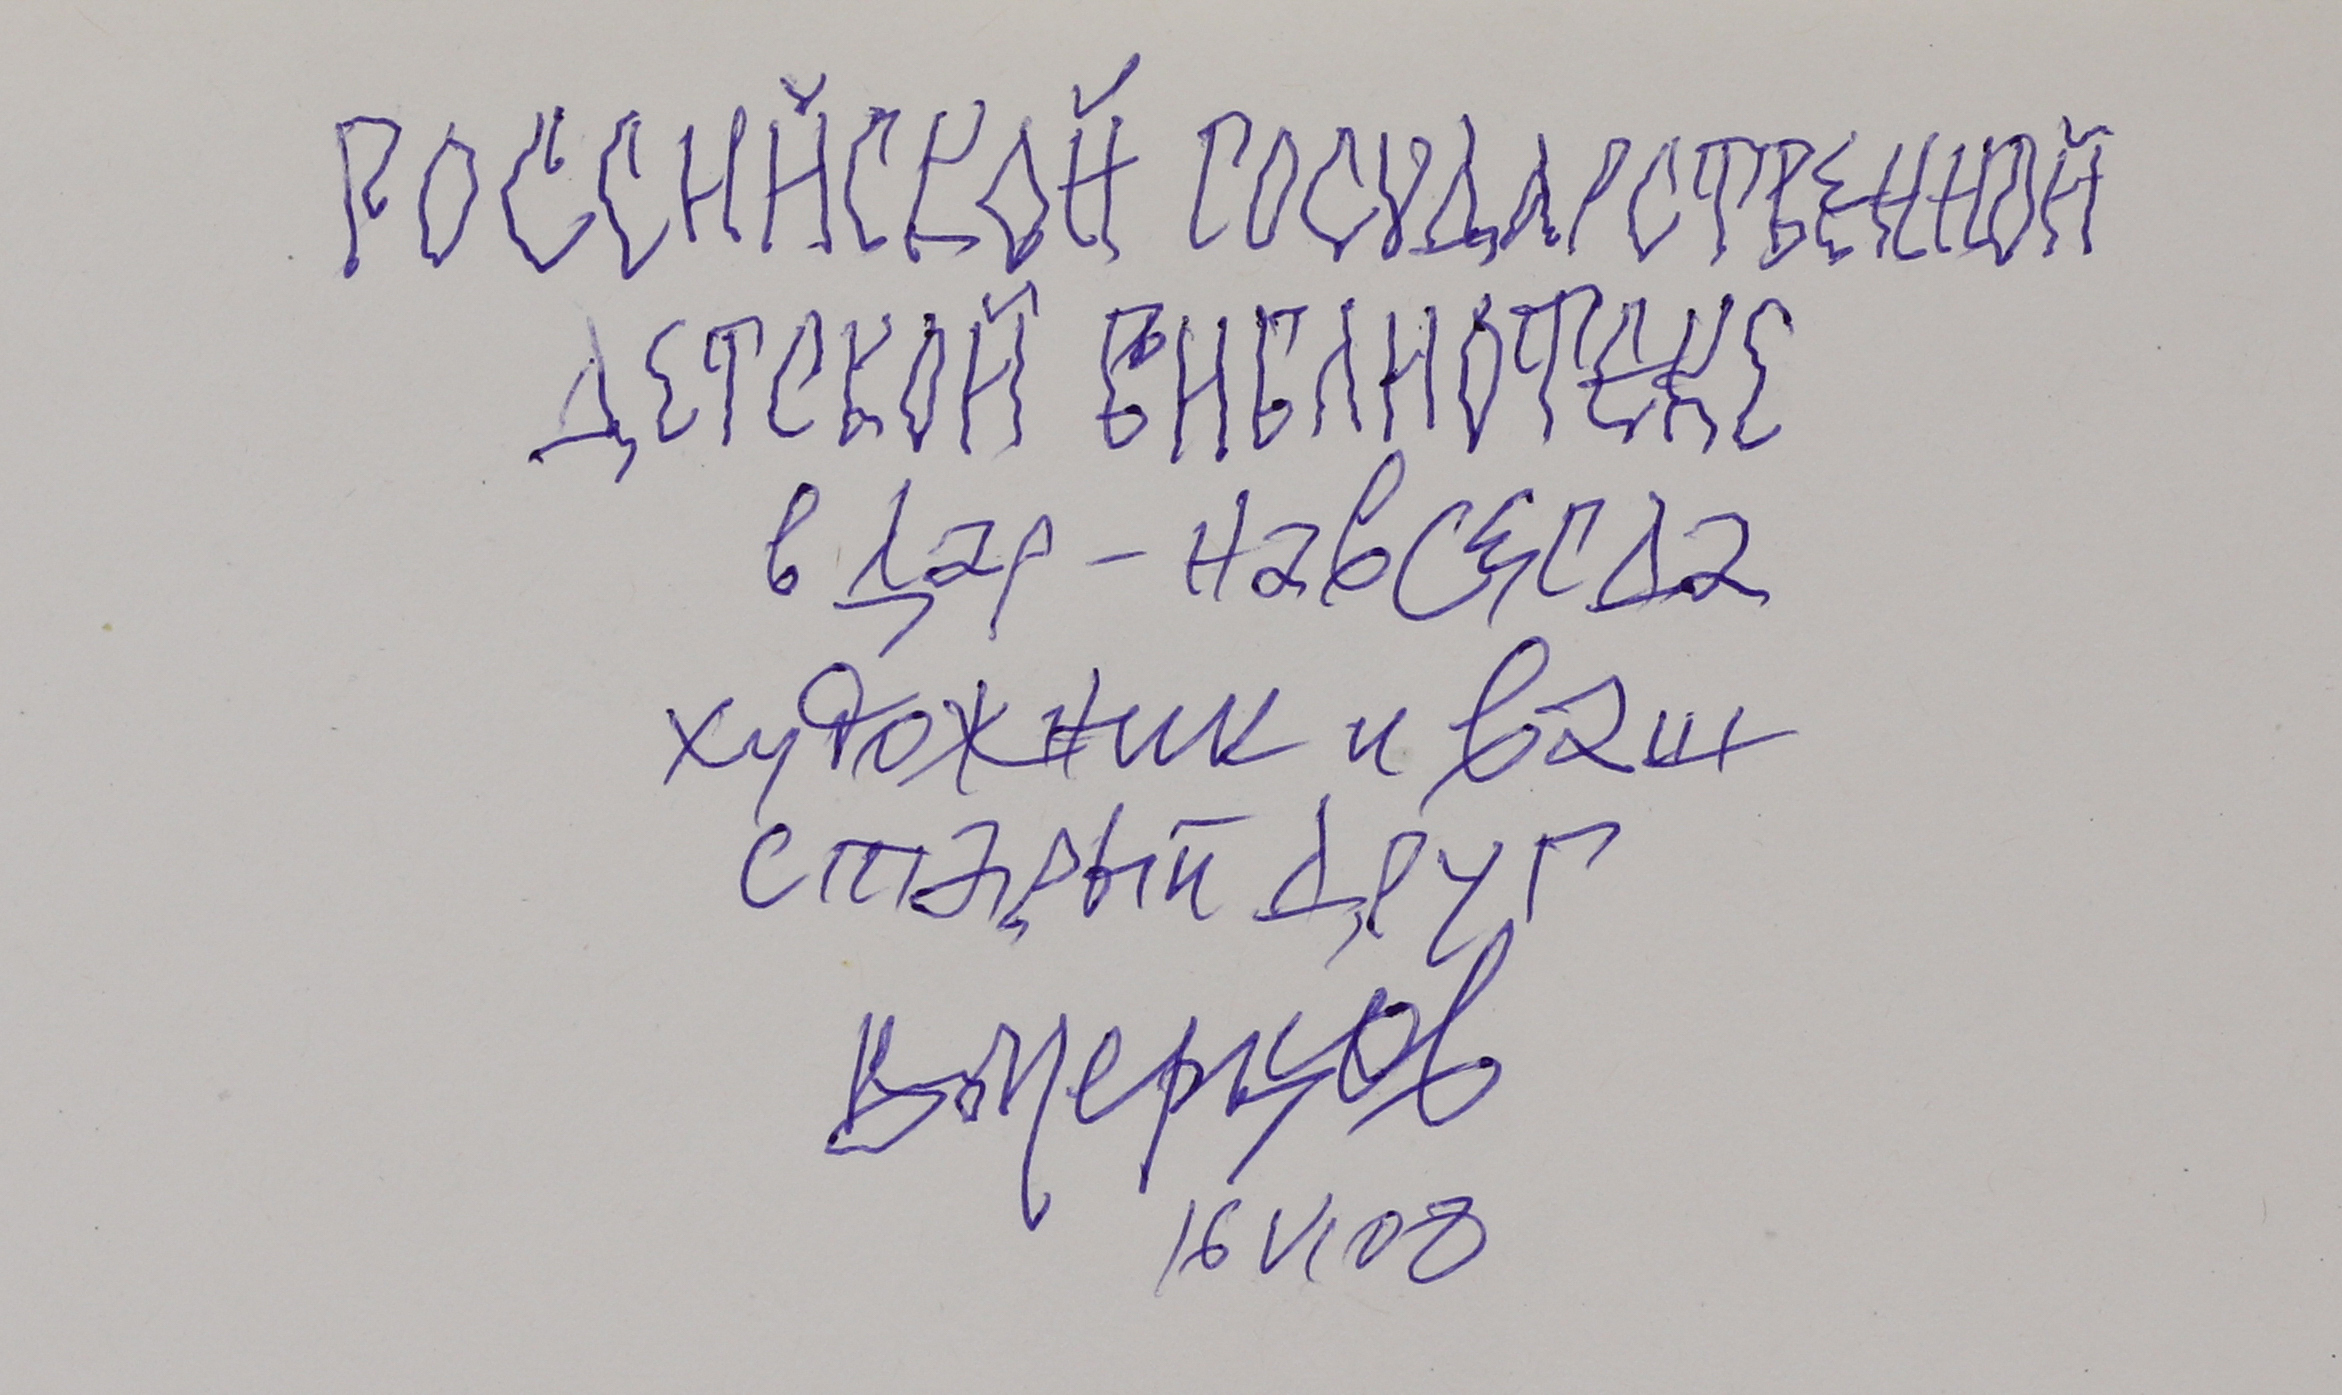 РОССИЙСКОЙ ГОСУДАРСТВЕННОЙ
ДЕТСКОЙ БИБЛИОТЕКЕ
в дар - навсегда
художник и ваш
старый друг
ВПерцов
16 VI 08